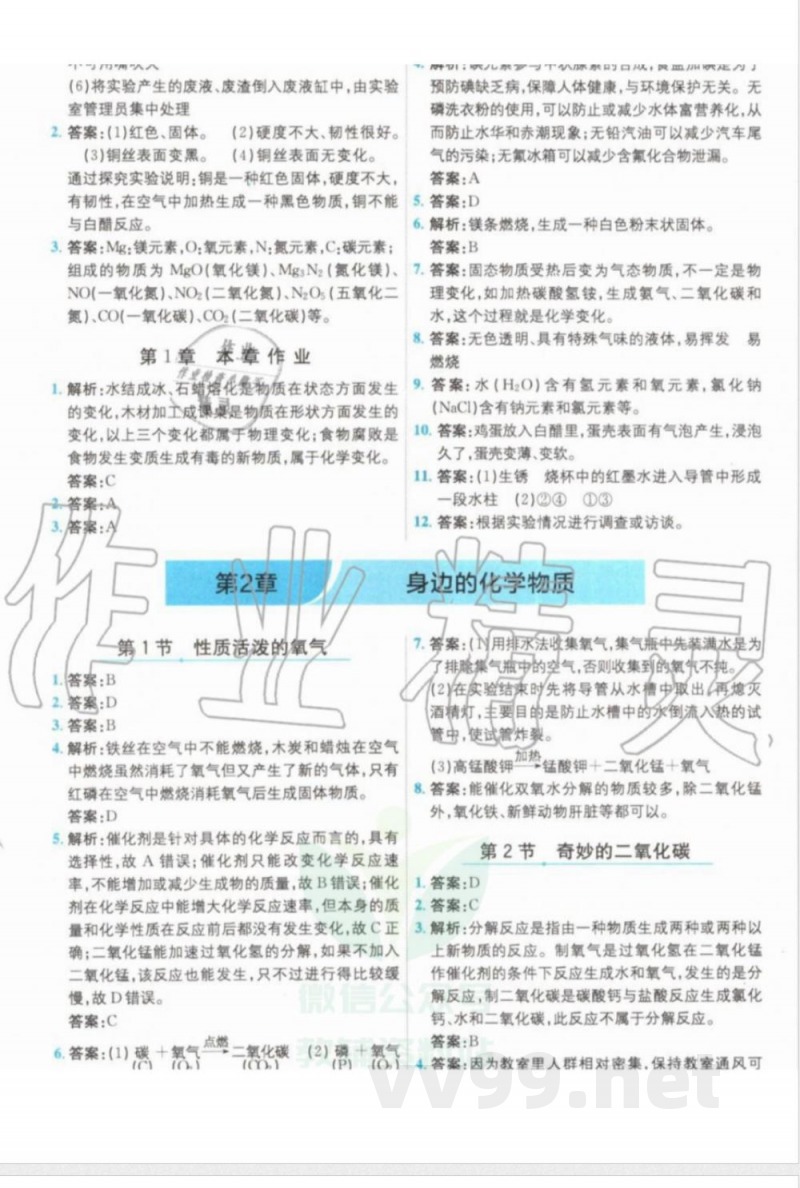 (6)将实验产生的废液、废渣倒入废液缸中,由实验
室管理员集中处理
2. 答案:(1)红色、固体。 (2)硬度不大、韧性很好。
(3)铜丝表面变黑。 (4)铜丝表面无变化。
通过探究实验说明:铜是一种红色固体,硬度不大,
有韧性,在空气中加热生成一种黑色物质,铜不能
与白醋反应。
3. 答案:Mg:镁元素,O:氧元素,N:氮元素,C:碳元素;
组成的物质为 MgO(氧化镁)、Mg₃N₂(氮化镁)、
NO(一氧化氮)、NO₂(二氧化氮)、N₂O₅(五氧化二
氮)、CO(一氧化碳)、CO₂(二氧化碳)等。
第1章 本章作业
1. 解析:水结成冰、石蜡熔化是物质在状态方面发生
的变化,木材加工成课桌是物质在形状方面发生的
变化,以上三个变化都属于物理变化;食物腐败是
食物发生变质生成有毒的新物质,属于化学变化。
答案:C
2. 答案:A
3. 答案:A
4. 解析:碘元素参与甲状腺素的合成,食盐加碘是为了
预防碘缺乏病,保障人体健康,与环境保护无关。无
磷洗衣粉的使用,可以防止或减少水体富营养化,从
而防止水华和赤潮现象;无铅汽油可以减少汽车尾
气的污染;无氟冰箱可以减少含氟化合物泄漏。
答案:A
5. 答案:D
6. 解析:镁条燃烧,生成一种白色粉末状固体。
答案:B
7. 答案:固态物质受热后变为气态物质,不一定是物
理变化,如加热碳酸氢铵,生成氨气、二氧化碳和
水,这个过程就是化学变化。
8. 答案:无色透明、具有特殊气味的液体,易挥发 易
燃烧
9. 答案:水(H₂O)含有氢元素和氧元素,氯化钠
(NaCl)含有钠元素和氯元素等。
10. 答案:鸡蛋放入白醋里,蛋壳表面有气泡产生,浸泡
久了,蛋壳变薄、变软。
11. 答案:(1)生锈 烧杯中的红墨水进入导管中形成
一段水柱 (2)②④ ①③
12. 答案:根据实验情况进行调查或访谈。
第2章 身边的化学物质
第1节 性质活泼的氧气
1. 答案:B
2. 答案:D
3. 答案:B
4. 解析:铁丝在空气中不能燃烧,木炭和蜡烛在空气
中燃烧虽然消耗了氧气但又产生了新的气体,只有
红磷在空气中燃烧消耗氧气后生成固体物质。
答案:D
5. 解析:催化剂是针对具体的化学反应而言的,具有
选择性,故 A 错误;催化剂只能改变化学反应速
率,不能增加或减少生成物的质量,故 B 错误;催化
剂在化学反应中能增大化学反应速率,但本身的质
量和化学性质在反应前后都没有发生变化,故 C 正
确;二氧化锰能加速过氧化氢的分解,如果不加入
二氧化锰,该反应也能发生,只不过进行得比较缓
慢,故 D 错误。
答案:C
6. 答案:(1) 碳 + 氧气 点燃→ 二氧化碳 (2) 磷 + 氧气
(C) (O₂) (CO₂) (P) (O₂)
7. 答案:(1)用排水法收集氧气,集气瓶中先装满水是为
了排除集气瓶中的空气,否则收集到的氧气不纯。
(2)在实验结束时先将导管从水槽中取出,再熄灭
酒精灯,主要目的是防止水槽中的水倒流入热的试
管中,使试管炸裂。
(3)高锰酸钾 加热→ 锰酸钾+二氧化锰+氧气
8. 答案:能催化双氧水分解的物质较多,除二氧化锰
外,氧化铁、新鲜动物肝脏等都可以。
第2节 奇妙的二氧化碳
1. 答案:D
2. 答案:C
3. 解析:分解反应是指由一种物质生成两种或两种以
上新物质的反应。制氧气是过氧化氢在二氧化锰
作催化剂的条件下反应生成水和氧气,发生的是分
解反应,制二氧化碳是碳酸钙与盐酸反应生成氯化
钙、水和二氧化碳,此反应不属于分解反应。
答案:B
4. 答案:因为教室里人群相对密集,保持教室通风可
作业精灵
微信公众号
vv99.net